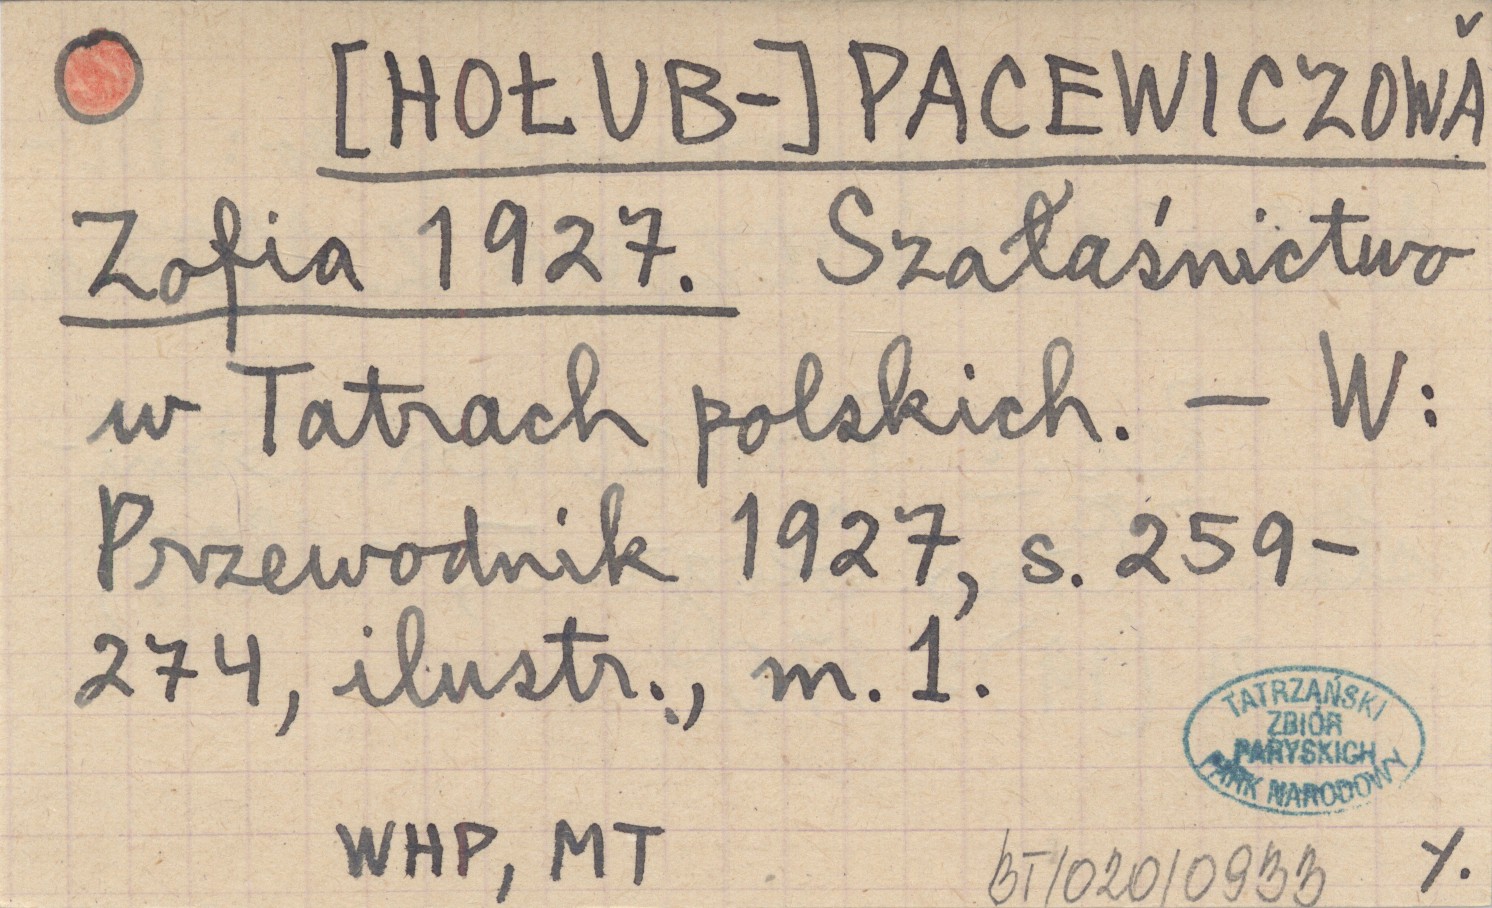 [HOŁUB-] PACEWICZOWA
Zofia 1927. Szałaśnictwo
w Tatrach polskich. — W:
Przewodnik 1927, s. 259-
274, ilustr., m. 1.
TATRZAŃSKI
ZBIÓR
PARYSKICH
PARK NARODOWY
WHP, MT
BT/020/0933
Y.